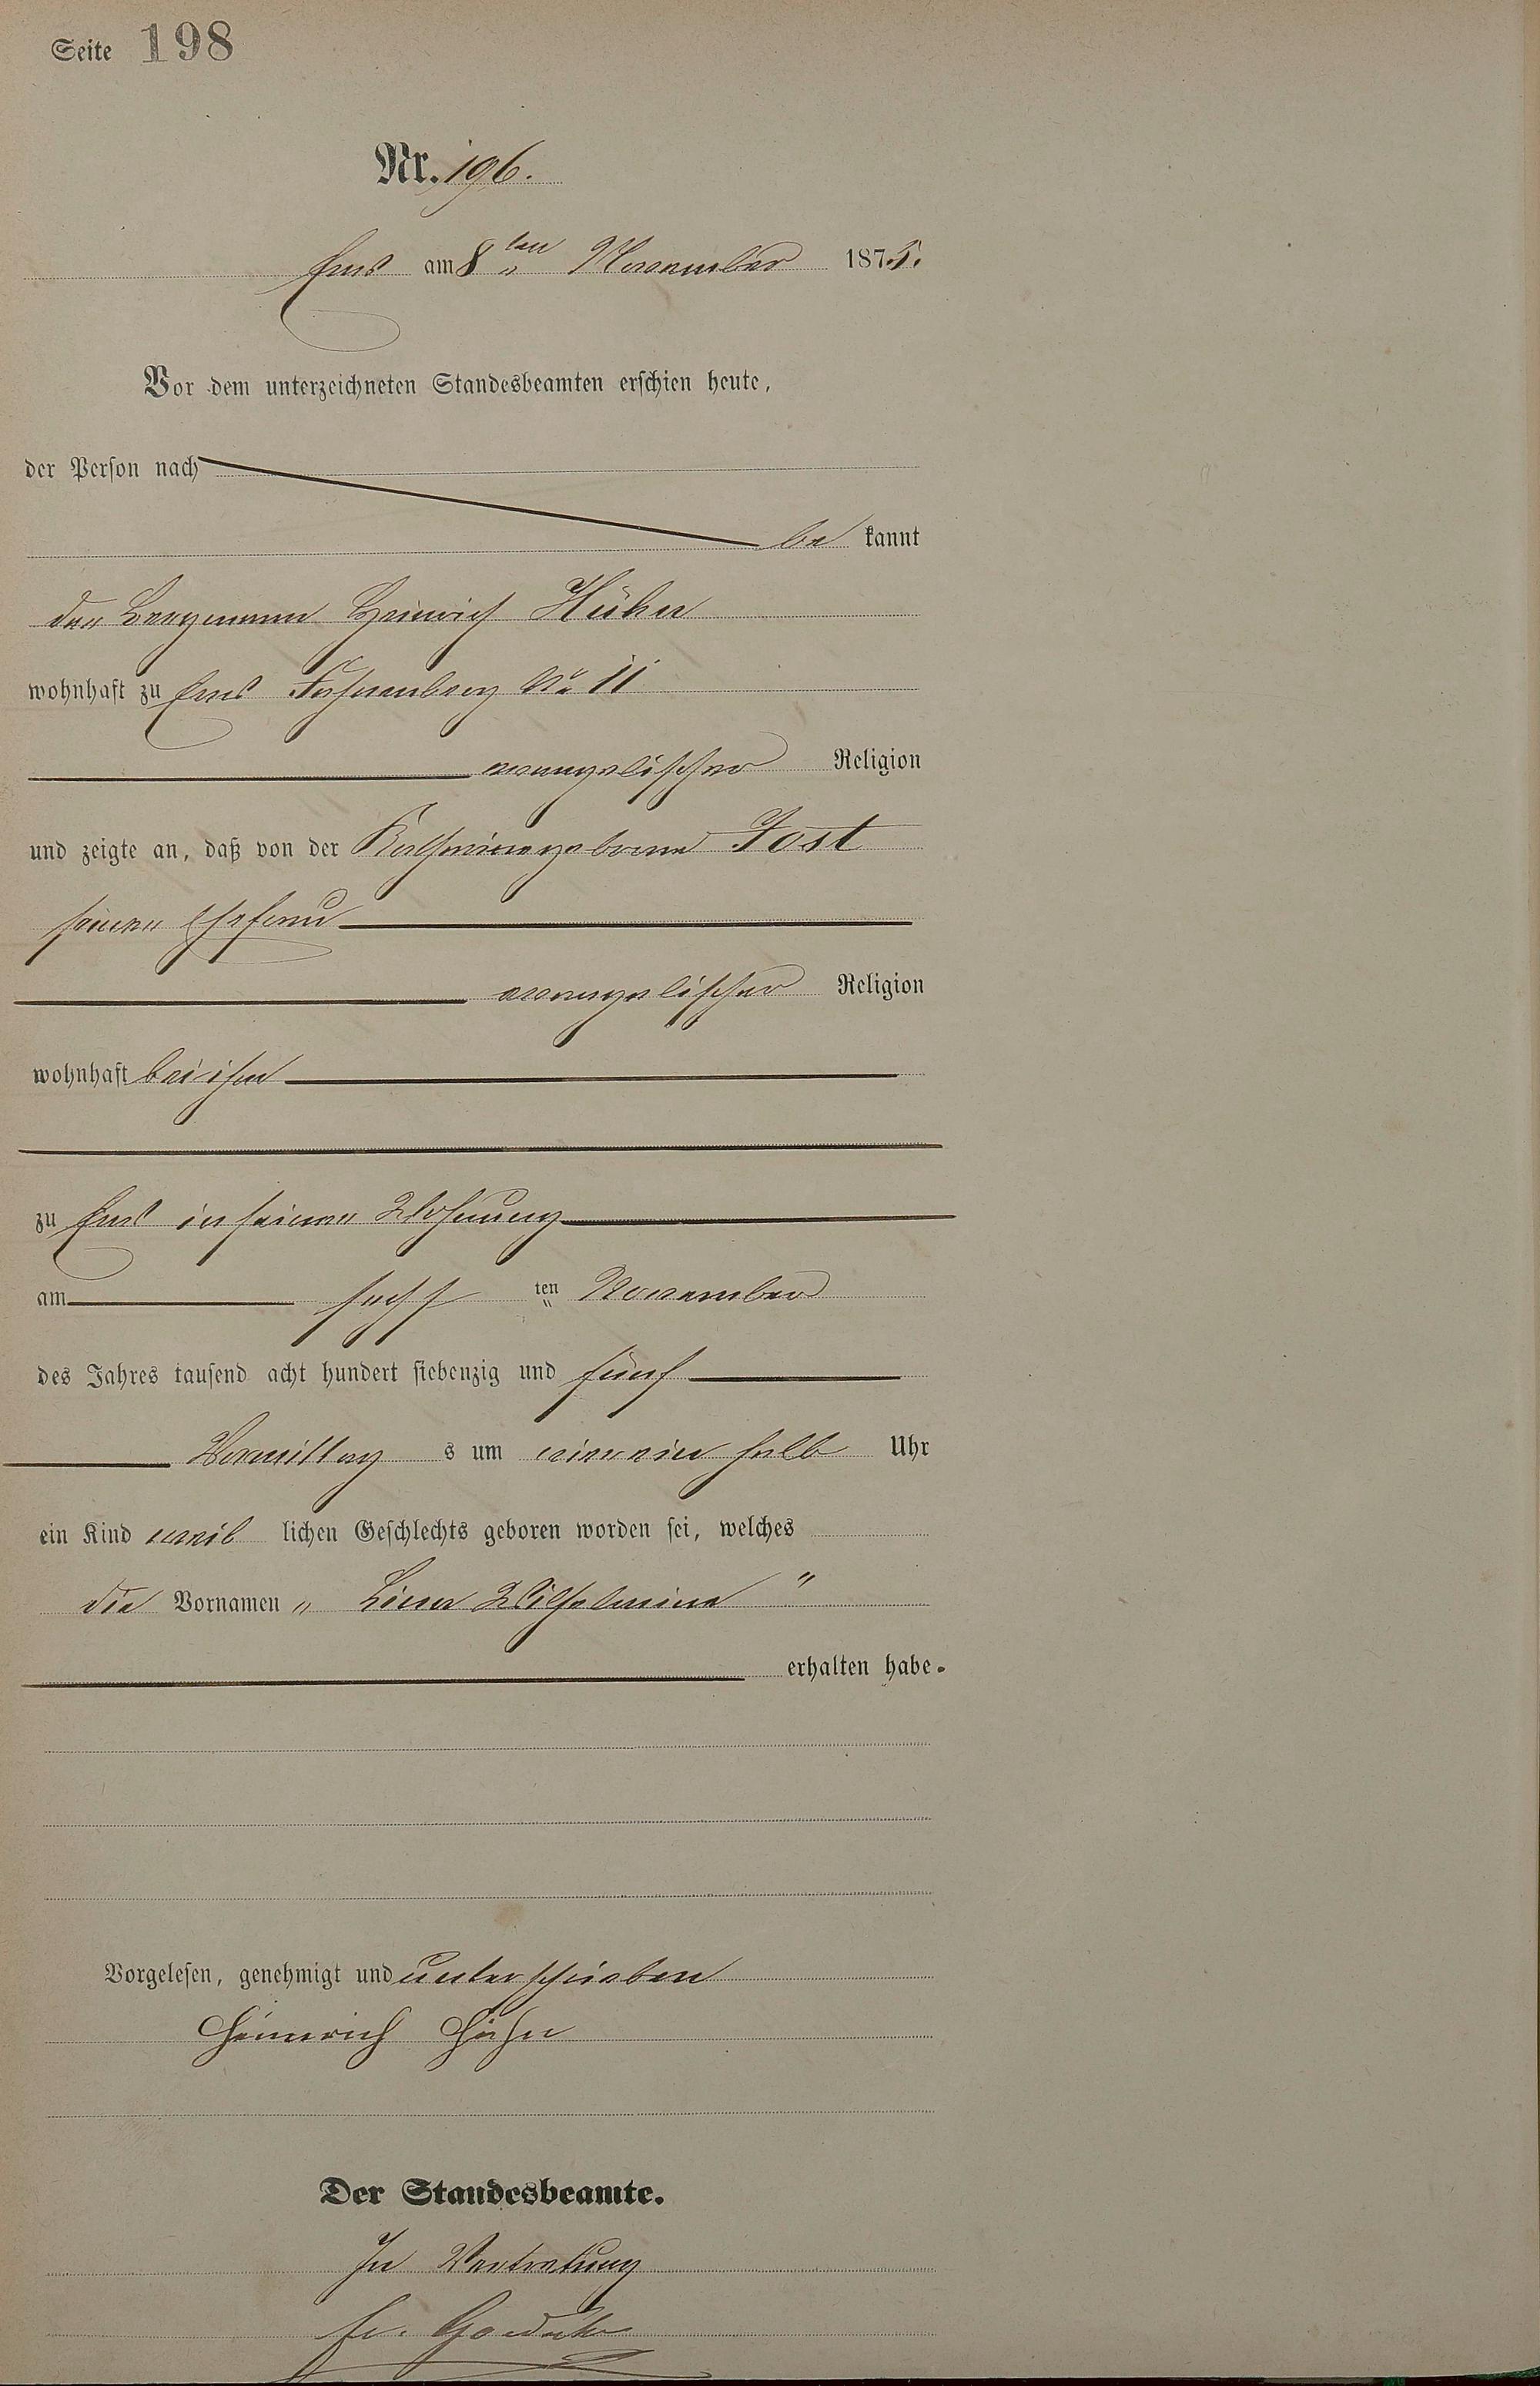 Seite 198
Nr. 196.
Ems am 8ten November 1875.
Vor dem unterzeichneten Standesbeamten erschien heute,
der Person nach
be kannt
der Bergmann Heinrich Hühn
wohnhaft zu Ems No 11
evangelischer Religion
und zeigte an, daß von der Katharine geborene Jost
seiner Ehefrau
evangelischer Religion
wohnhaft bei ihm
zu Ems in seiner Wohnung
am sechs ten November
des Jahres tausend acht hundert siebenzig und fünf
Vormittag s um ein halb Uhr
ein Kind weib lichen Geschlechts geboren worden sei, welches
die Vornamen „ Lina Wilhelmine "
erhalten habe.
Vorgelesen, genehmigt und unterschrieben
Heinrich Hühn
Der Standesbeamte.
In Vertretung